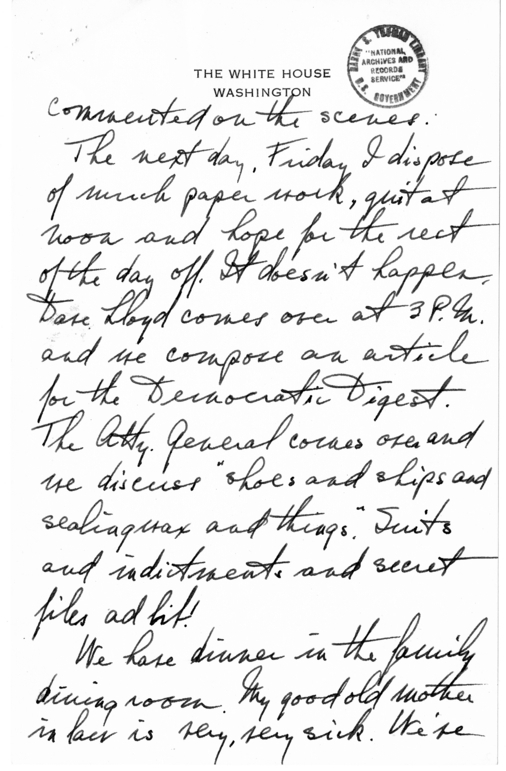 HARRY S. TRUMAN LIBRARY
"NATIONAL
ARCHIVES AND
RECORDS
SERVICE"
U.S. GOVERNMENT
THE WHITE HOUSE
WASHINGTON
commented on the scenes.
The next day, Friday I dispose
of much paper work, quit at
noon and hope for the rest
of the day off. It doesn't happen.
Dave Lloyd comes over at 3 P.M.
and we compose an article
for the Democratic Digest.
The Atty. General comes over and
we discuss "shoes and ships and
sealingwax and things". Suits
and indictments and secret
files ad lib!
We have dinner in the family
dining room. My good old mother
in law is very, very sick. We've